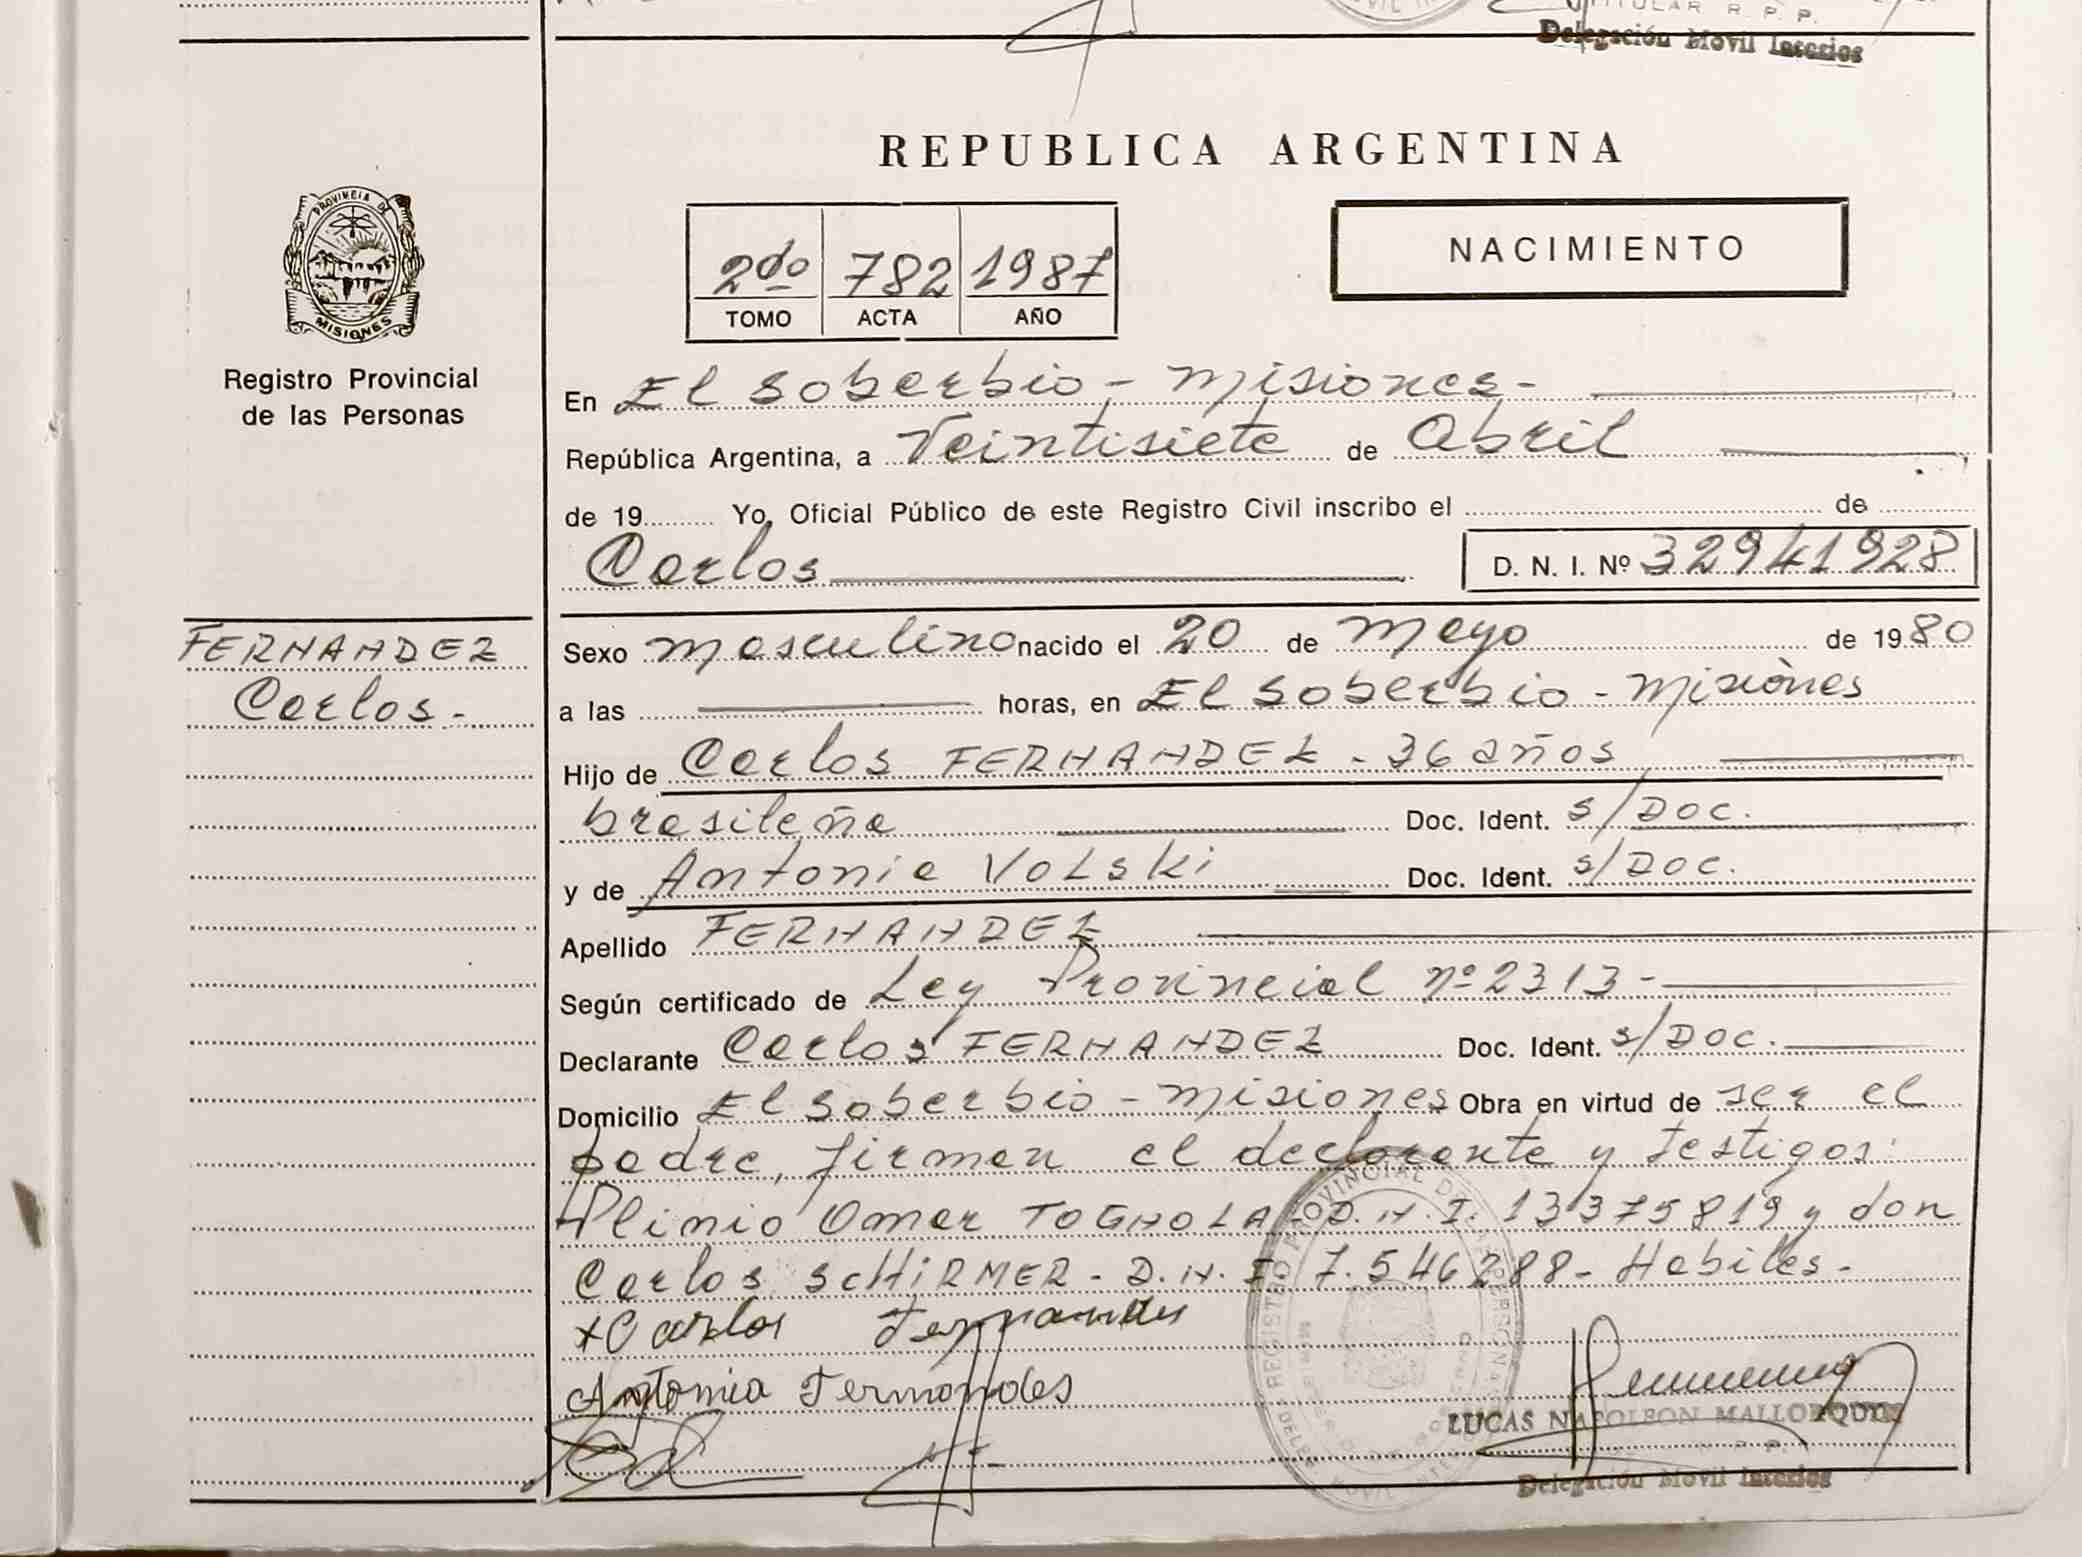 TITULAR R. P. P.
Delegación Movil Interios
REPUBLICA ARGENTINA
PROVINCIA DE
MISIONES
Registro Provincial
de las Personas
2do 782 1987
TOMO ACTA AÑO
NACIMIENTO
En El Soberbio - Misiones -
República Argentina, a Veintisiete de Abril
de 19 Yo, Oficial Público de este Registro Civil inscribo el de
Carlos D. N. I. Nº 32941928
FERNANDEZ
Carlos -
Sexo masculino nacido el 20 de Mayo de 1980
a las horas, en El Soberbio - Misiones
Hijo de Carlos FERNANDEZ - 36 años
brasileña Doc. Ident. s/DOC.
y de Antonia VOLSKi Doc. Ident. s/DOC.
Apellido FERNANDEZ
Según certificado de Ley Provincial nº 2313 -
Declarante Carlos FERNANDEZ Doc. Ident. s/DOC.
Domicilio El Soberbio - Misiones Obra en virtud de ser el
padre, firman el declarante y testigos:
Plinio Omar TOGNOLA - D.N.I. 13375819 y don
Carlos SCHIRMER - D.N.I 7.546288 - Habiles -
+Carlos Fernandes
Antonia Fernandes
REGISTRO PROVINCIAL DE LAS PERSONAS
LUCAS NAPOLEON MALLORQUIN
R. P. P.
Delegación Movil Interios